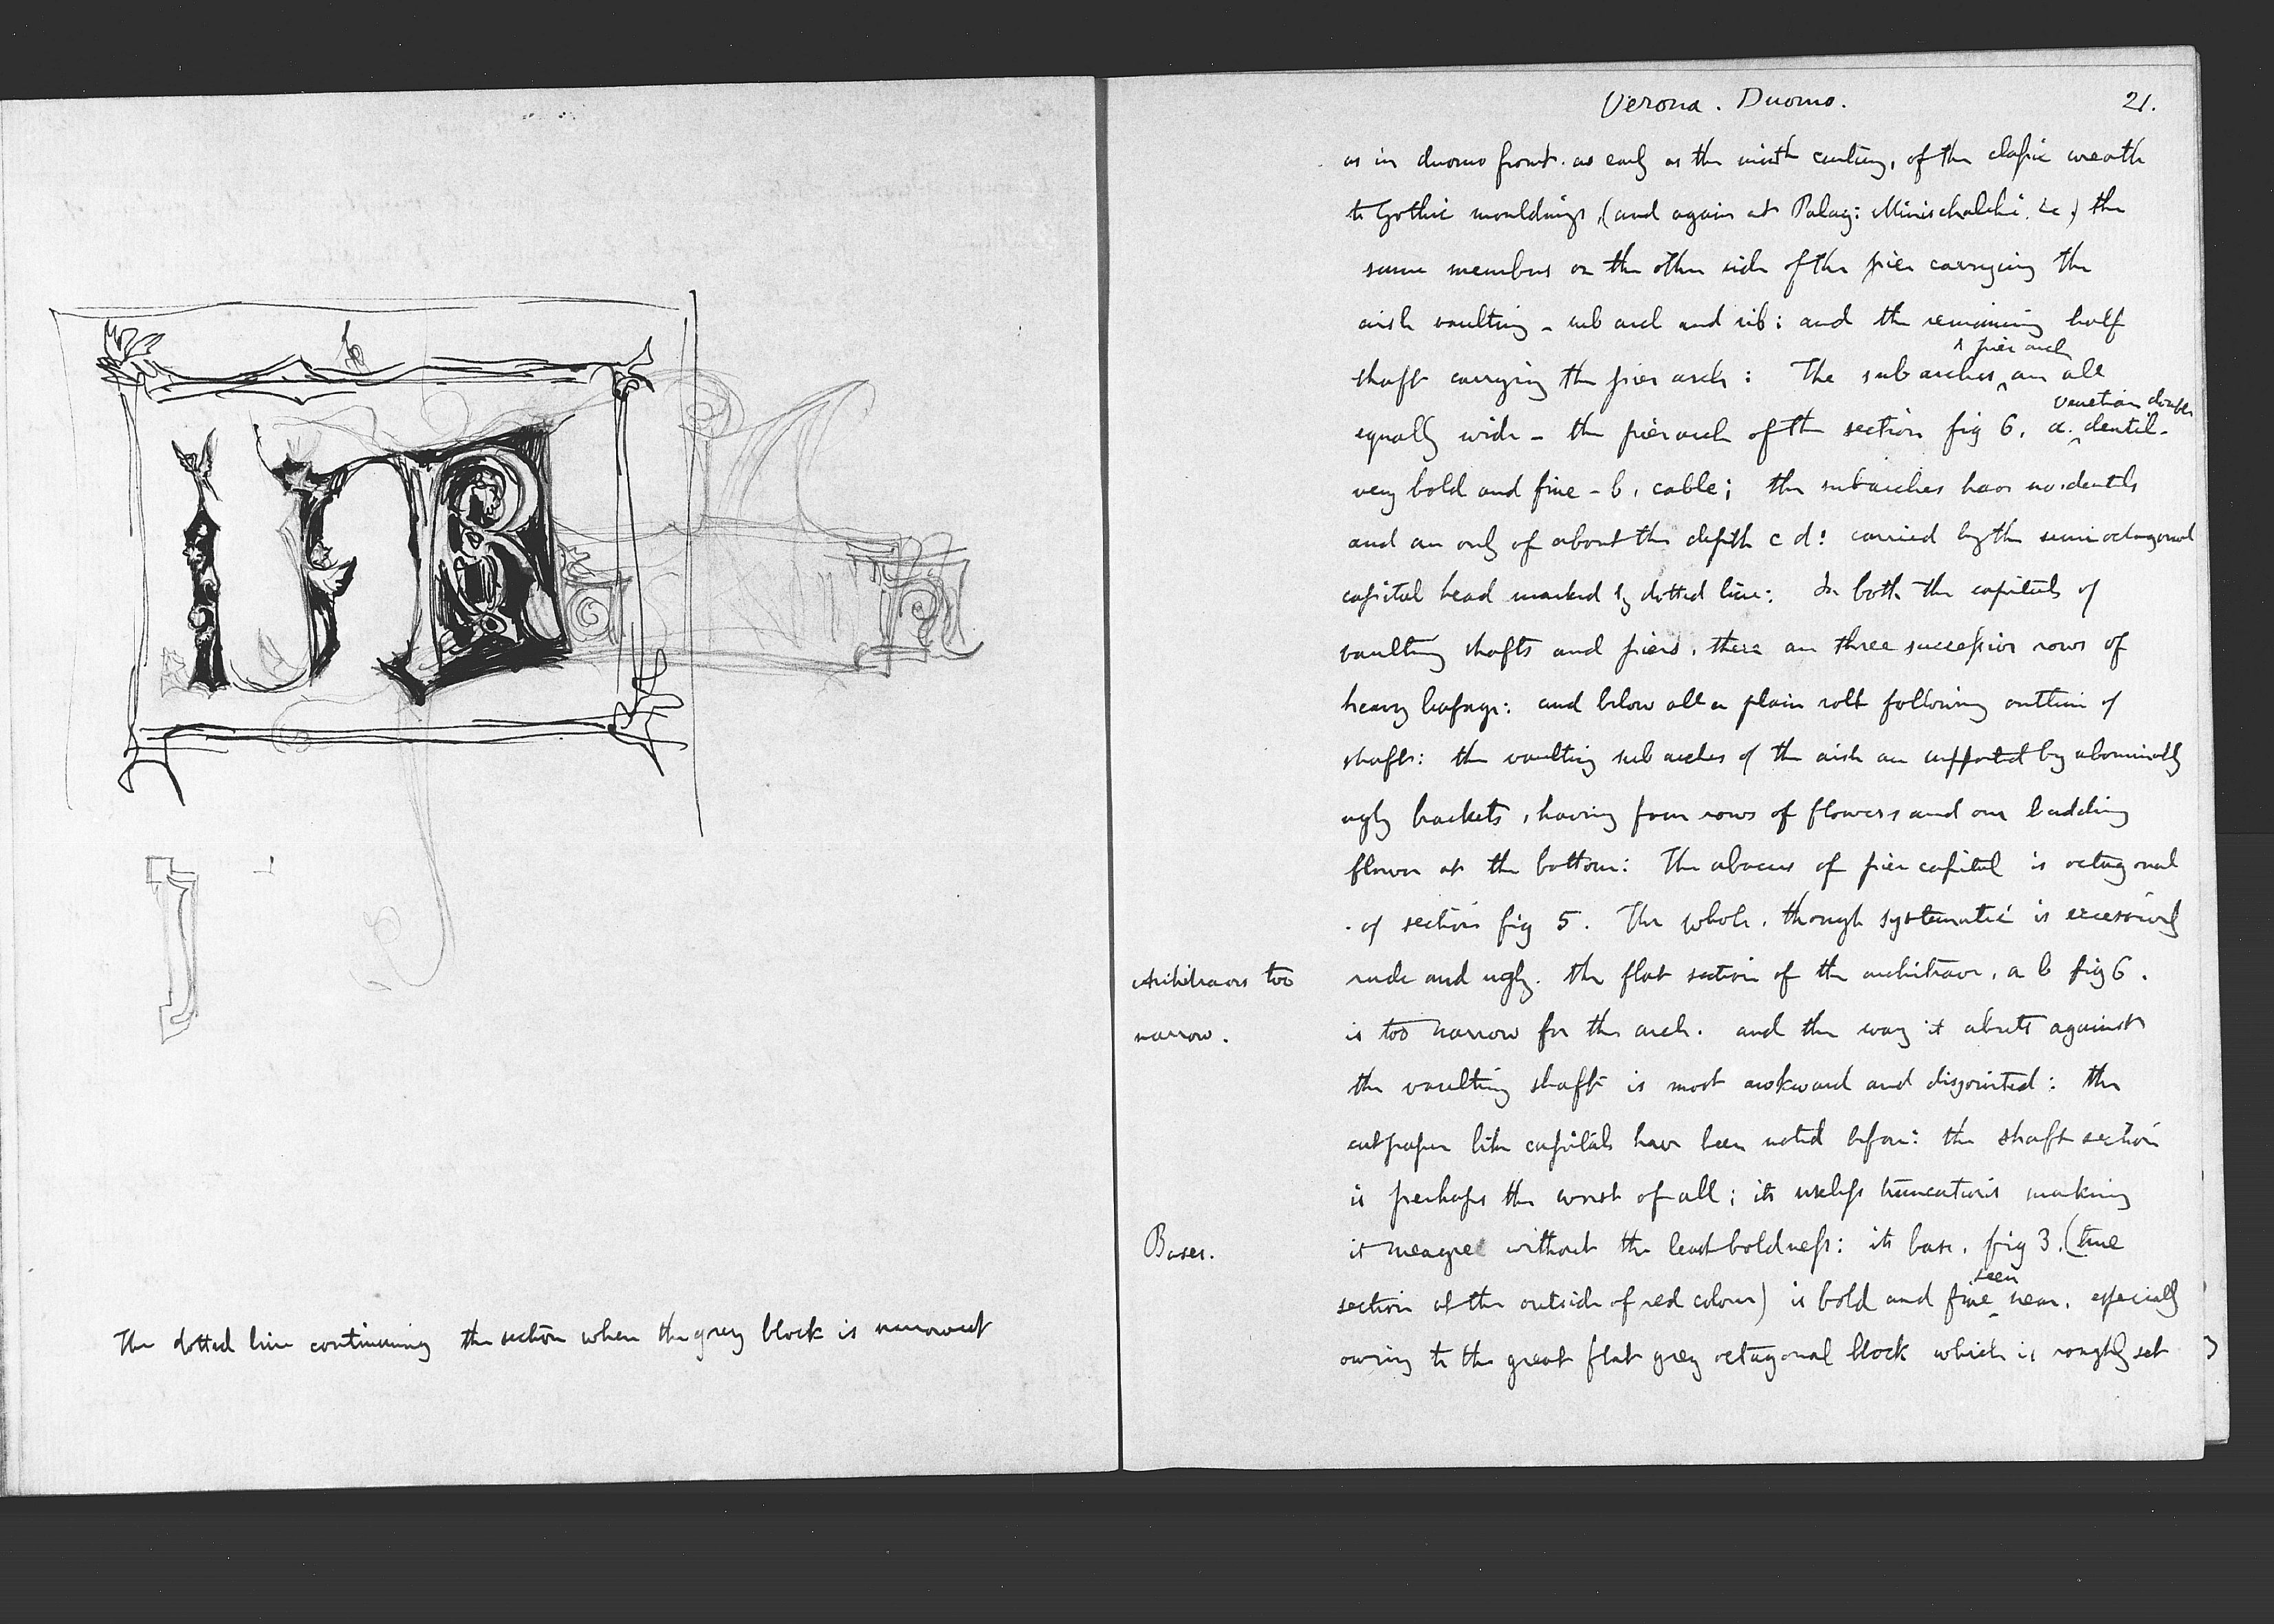 The dotted line continuing the section where the grey block is narrowest
Verona. Duomo.
21.
as in duomo front. as early as the ninth century, of the classic wreath
to Gothic mouldings, (and again at Palaz: Miniscalchi. &c.) the
same members on the other side of the pier carrying the
aisle vaulting - sub arch and rib: and the remaining half
shaft carrying the pier arch: The subarches ^ & pier arch are all
equally wide - the pier arch of the section fig 6. a. ^ Venetian double dentil -
very bold and fine - b, cable; the subarches have no dentils
and are only of about the depth c d: carried by the semi octagonal
capital head marked by dotted line: In both the capitals of
vaulting shafts and piers, there are three successive rows of
heavy leafage: and below all a plain roll following outline of
shafts: the vaulting sub arches of the aisle are supported by abominably
ugly brackets, having four rows of flowers and one budding
flower at the bottom: The abacus of pier capital is octagonal
. of section fig 5. The whole, though systematic is excessively
Architraves too
rude and ugly. the flat section of the architrave, a b fig 6.
narrow.
is too narrow for the arch. and the way it abuts against
the vaulting shaft is most awkward and disjointed: the
cut paper like capitals have been noted before: the shaft section
is perhaps the worst of all; its useless truncations making
Bases.
it meagre without the least boldness: its base, fig 3. (true
section at the outside of red colour) is bold and fine ^ seen near, especially
owing to the great flat grey octagonal block which is roughly set